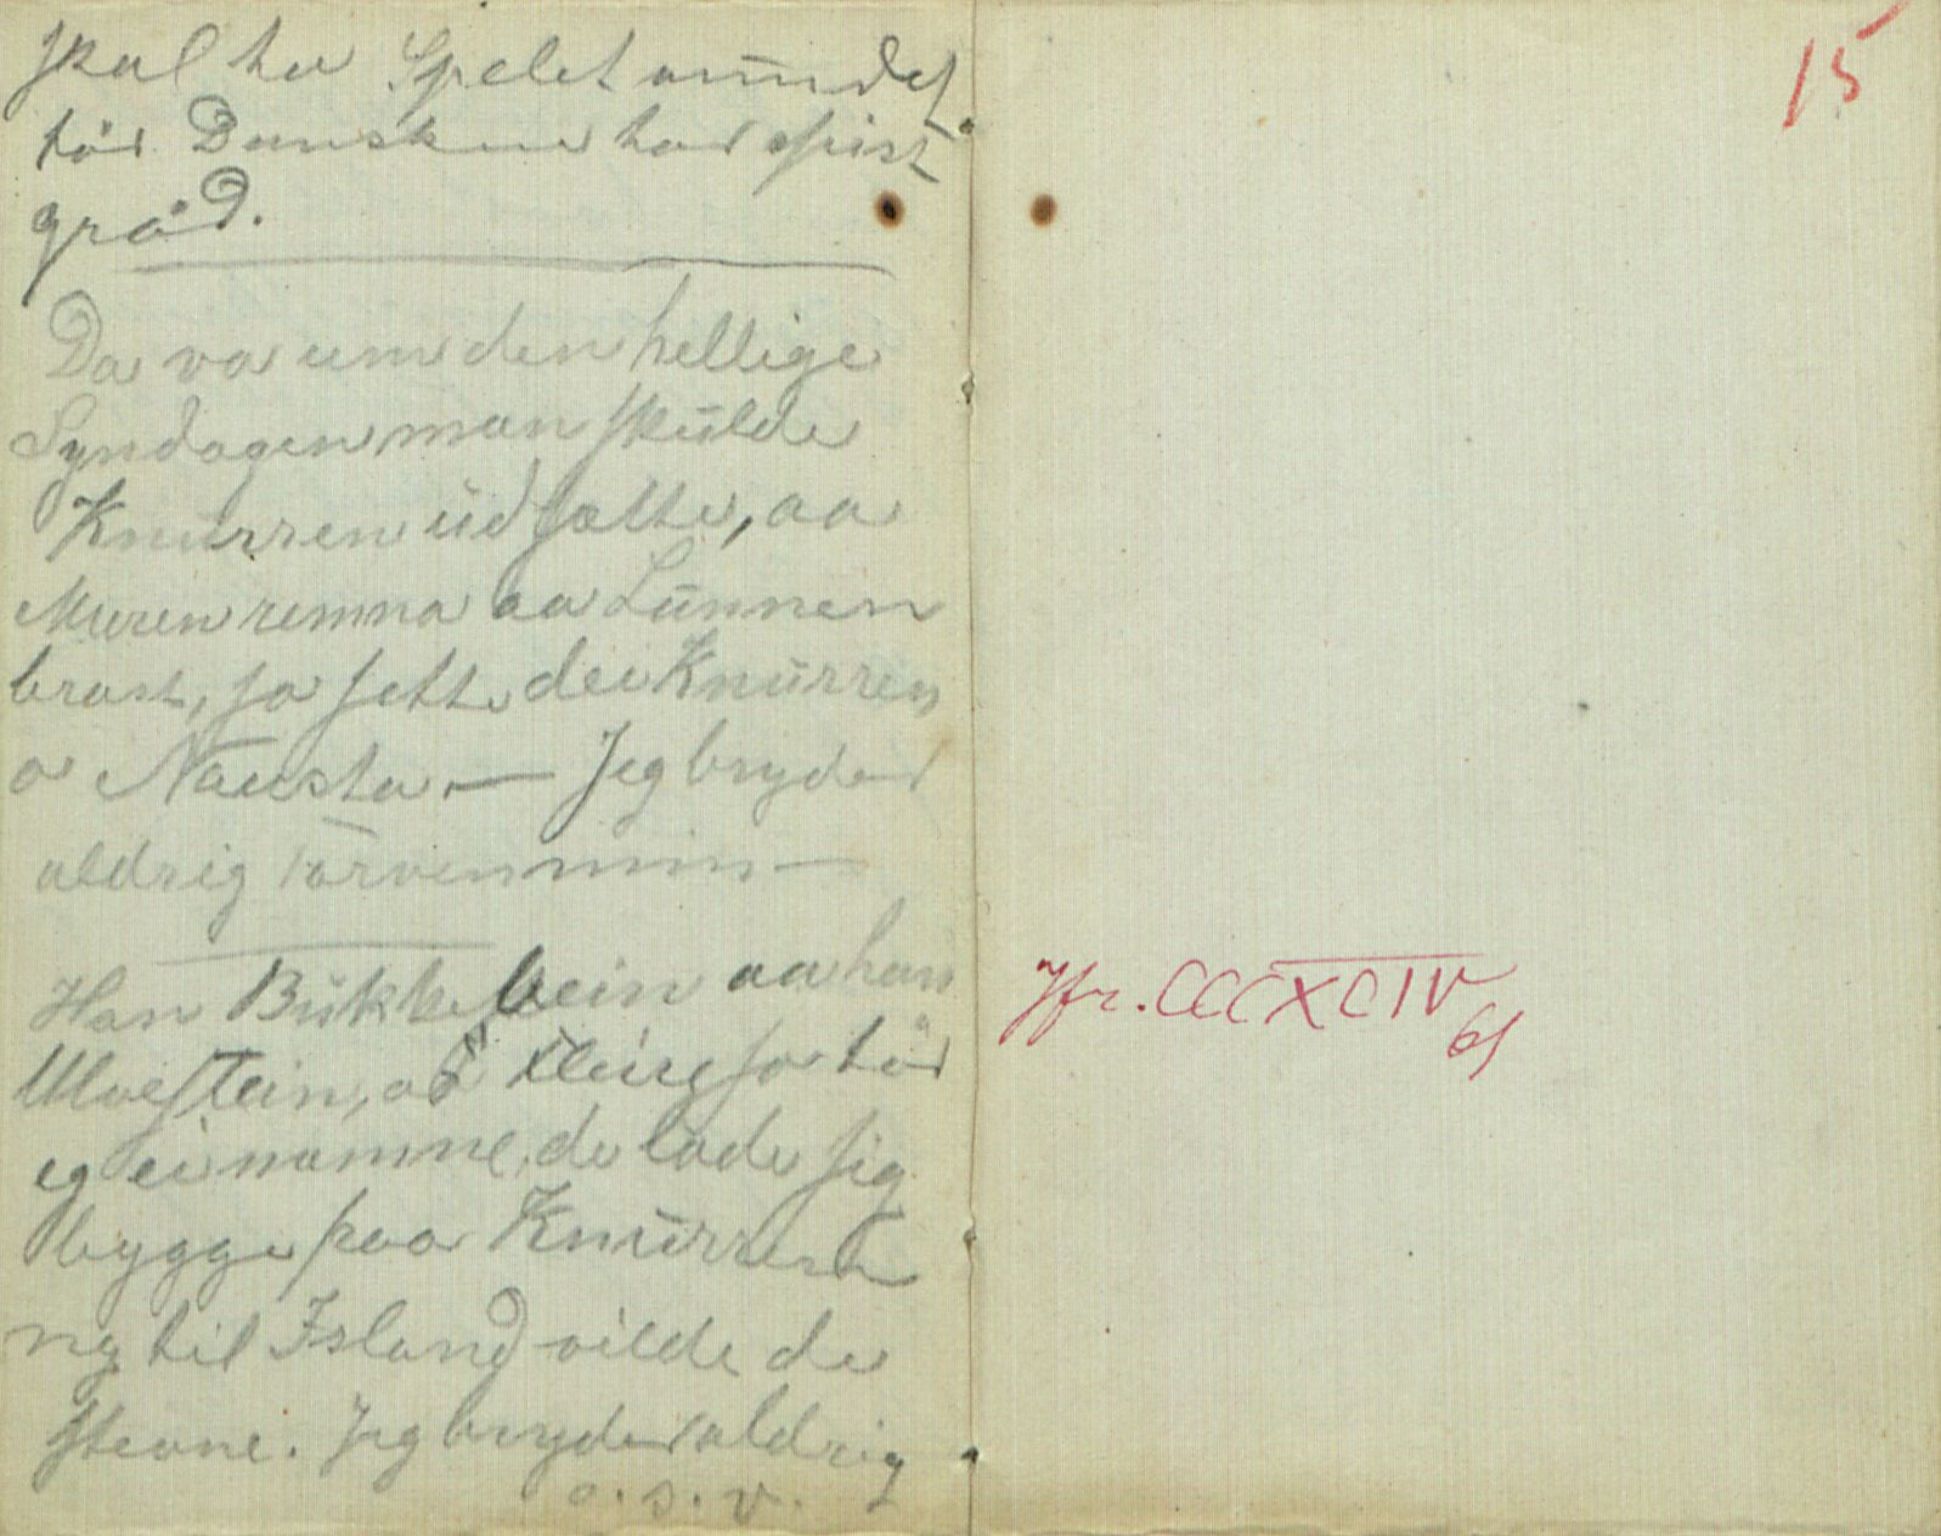 skal ha Spelet vundet
för Dansken har spist
gröd.
Da va um den hellige
Syndagen man skulde
Knurren üd sætte, aa
Muren remna aa Lunnen
brast, so sette dei Knurren
a Nausta. — Jeg bryder
aldrig Torven min —
Han Bukkebein aa han
Ulvestein, so tör
eg ei næmne, de lode sig
bygge paa Knurren
ny til Island vilde de
stevne. Jeg bryder aldrig
o. s. v.
15
Jfr. CCCXCIV
61